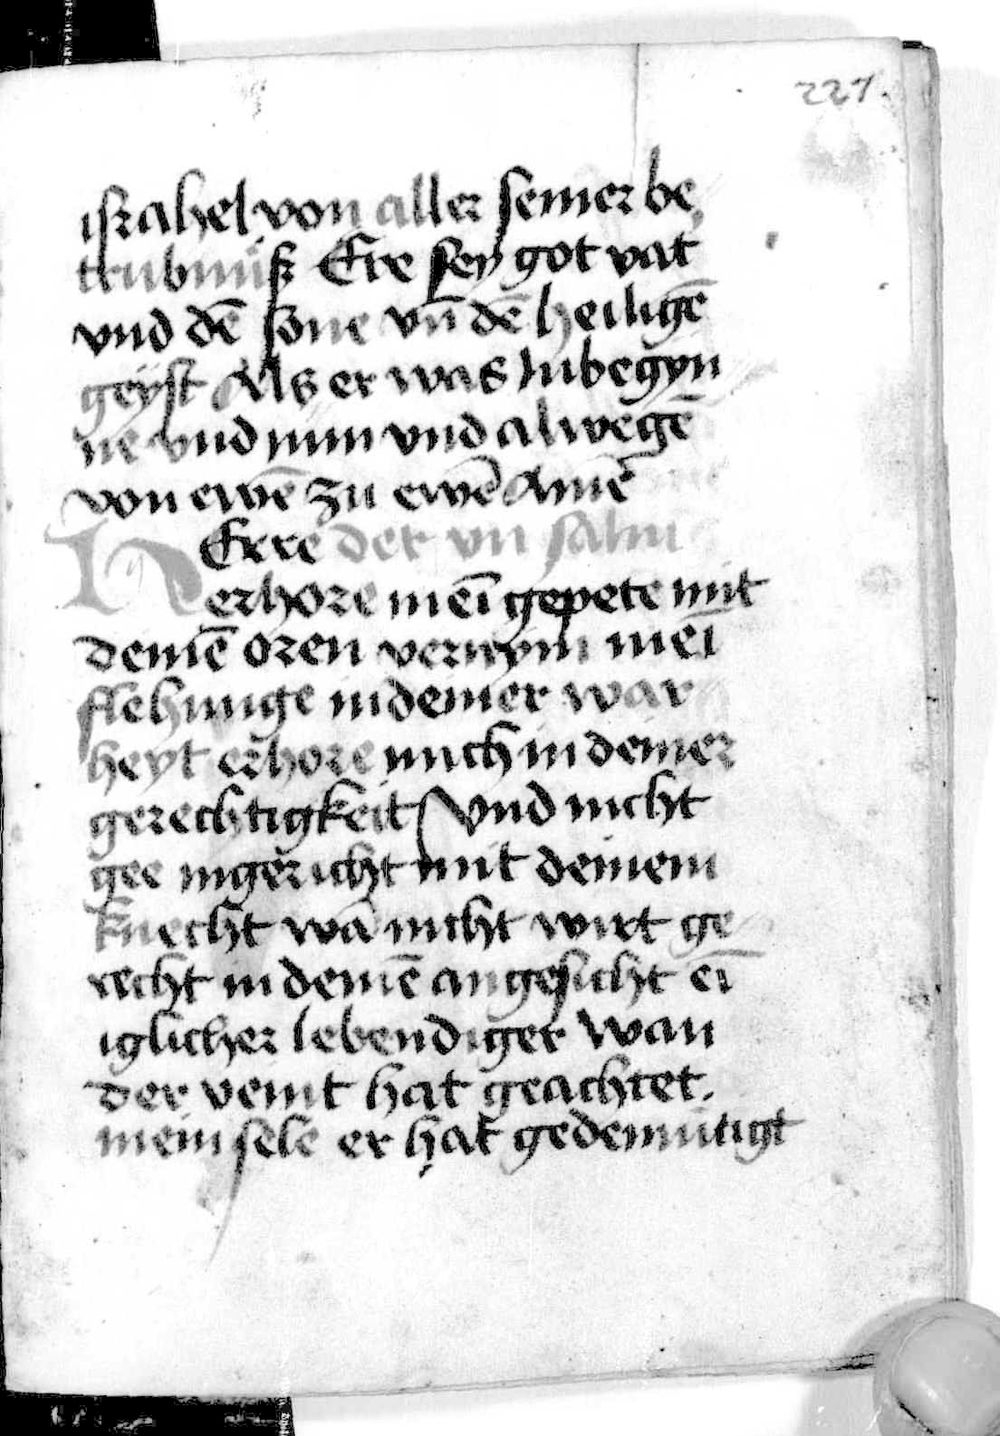 227.
israhel von aller seiner be
trubniß Ere sey got vat
vnd dē sone vn̄ dē heiligē
geyst Als er was in begyn
ne vnd nun vnd alwegē
von ewē zu ewē Amē
HErre der vii salm
erhore meī gepete mit
deinē oren vernym meī
flehunge in deiner war
heyt erhore mich in deiner
gerechtigkeit Vnd nicht
gee in gericht mit deinem
knecht wā nicht wirt ge
recht in deinē angesicht eī
iglicher lebendiger wan
der veint hat geachtet.
mein sele er hat gedemutigt